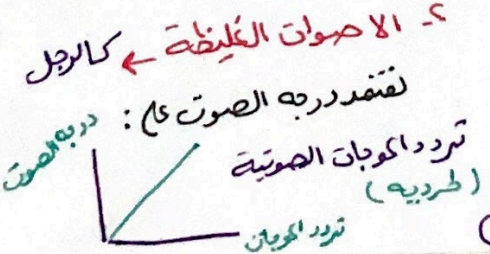 ٢- الاصوات الغليظة ← كالرجل
تعتمد درجه الصوت على :
تردد الموجات الصوتية
(طرديه)
درجه الصوت
تردد الموجات